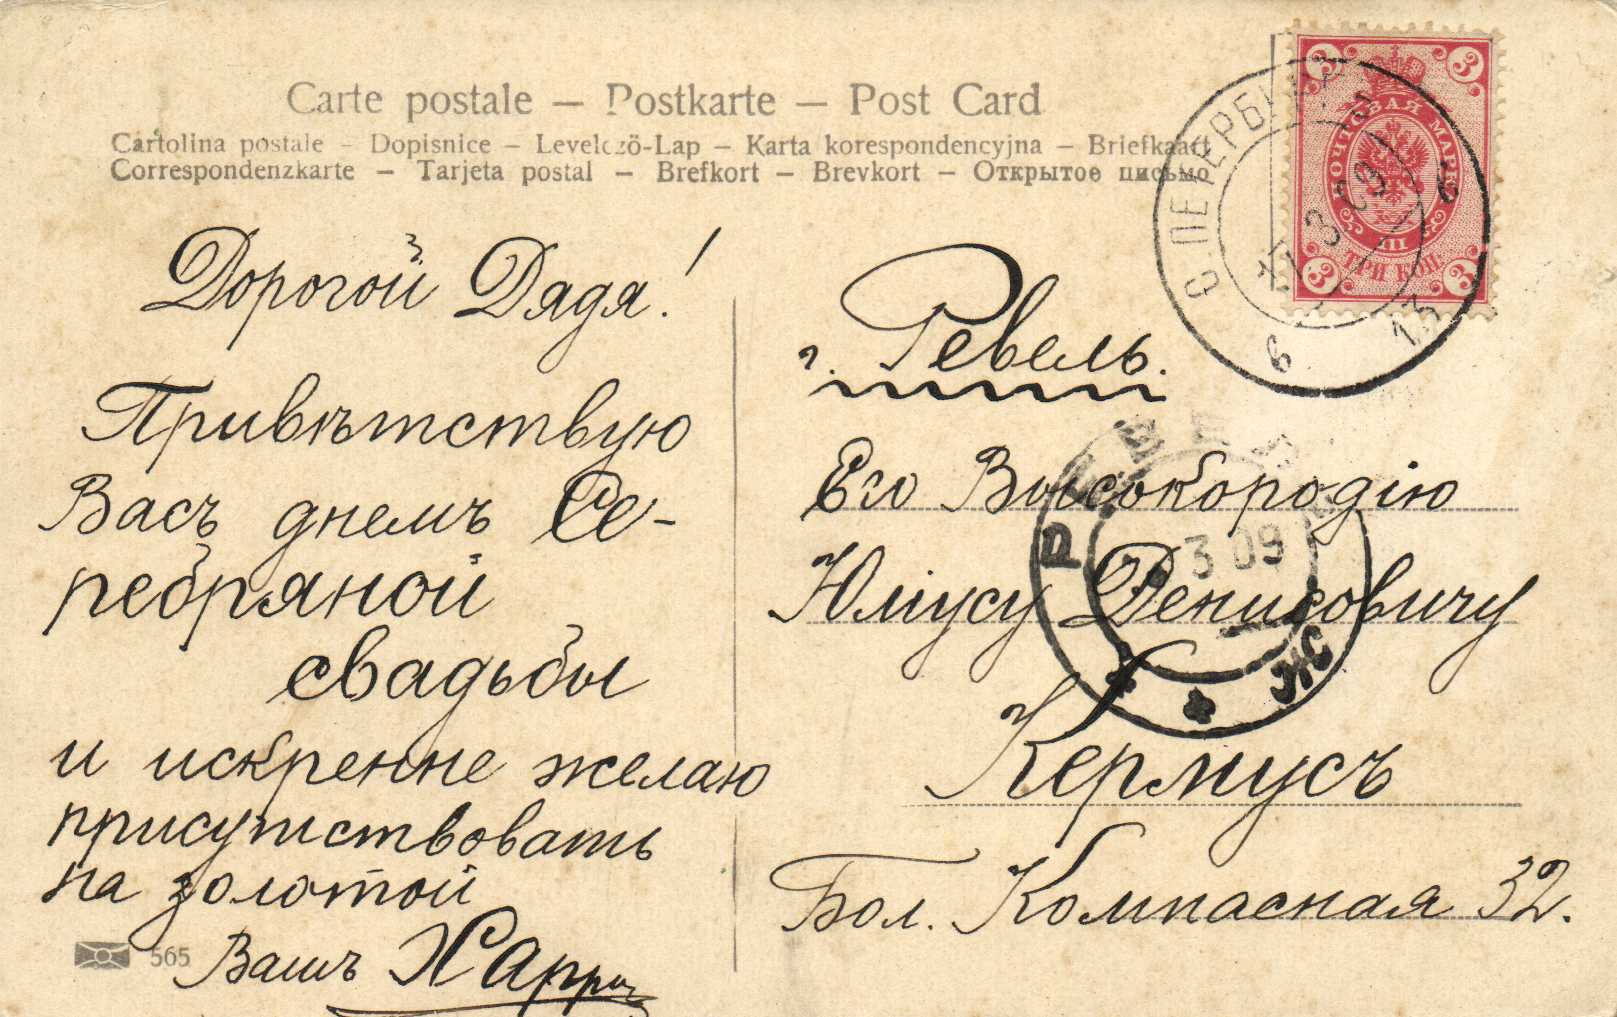 Carte postale — Postkarte — Post Card
Cartolina postale – Dopisnice – Levelező-Lap – Karta korespondencyjna – Briefkaart
Correspondenzkarte – Tarjeta postal – Brefkort – Brevkort – Открытое письмо
Дорогой Дядя!
Привѣтствую
Васъ днемъ Се-
ребряной
свадьбы
и искренне желаю
присутствовать
на золотой
Вашъ Харри
565
3 3
ПОЧТОВАЯ МАРКА
III
ТРИ КОП.
3 3
С.ПЕТЕРБУРГЪ
3 09
6
13
г. Ревель.
Его Высокородію
Юлиусу Денисовичу
Кермусъ
Бол. Компасная 32.
3 09
Ж